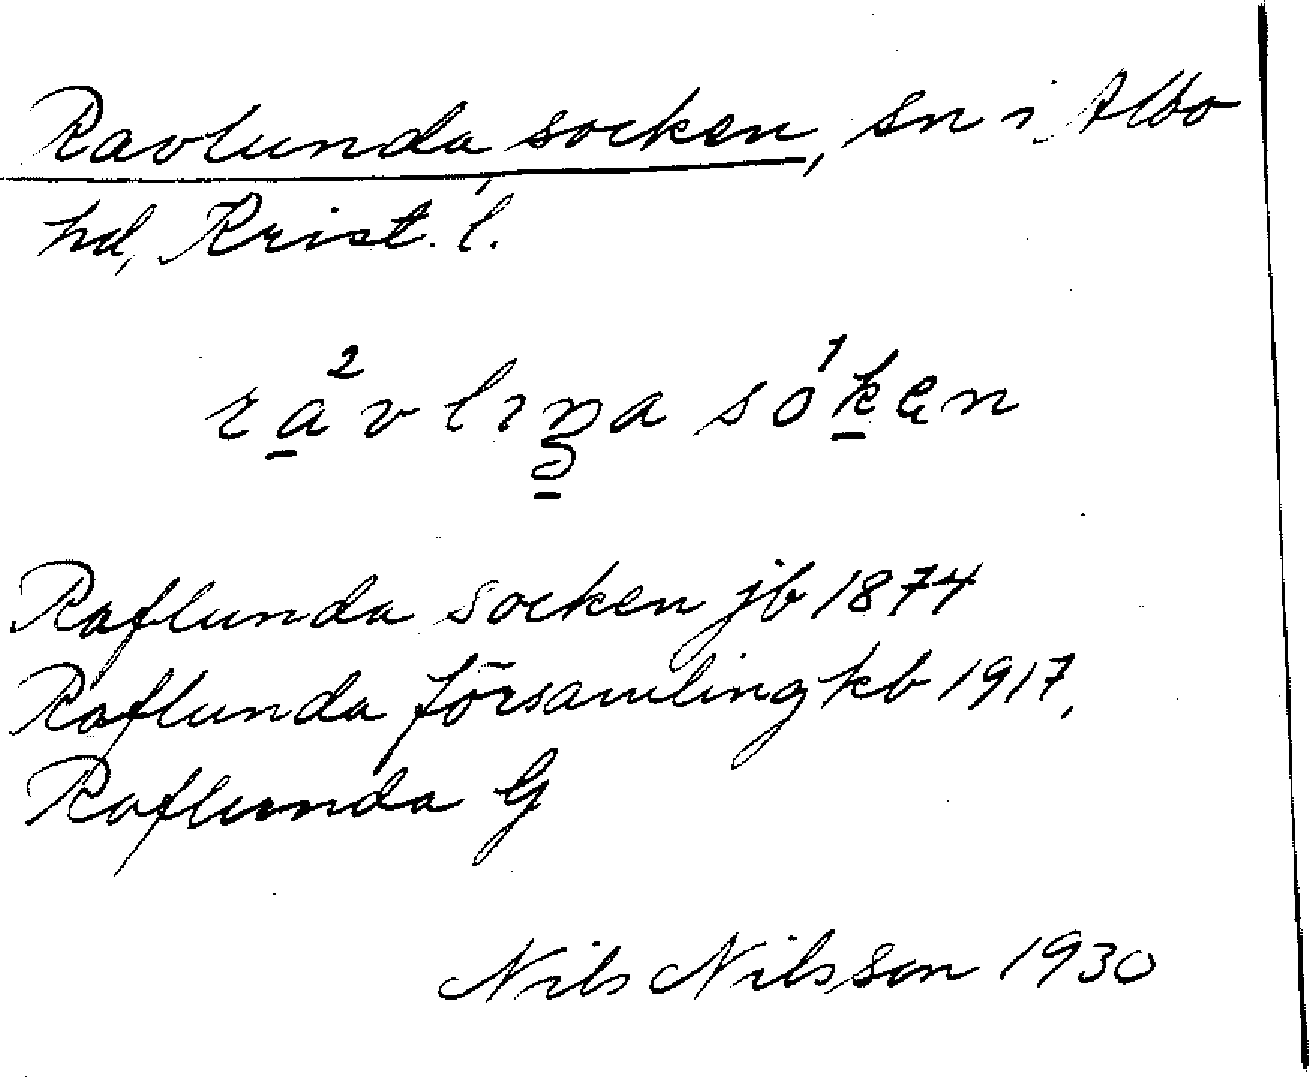 Ravlunda socken, sn i Albo
hd, Krist. l.
rävlıṇa sóken
Raflunda socken jb 1874
Raflunda församling kb 1917,
Raflunda G
Nils Nilsson 1930